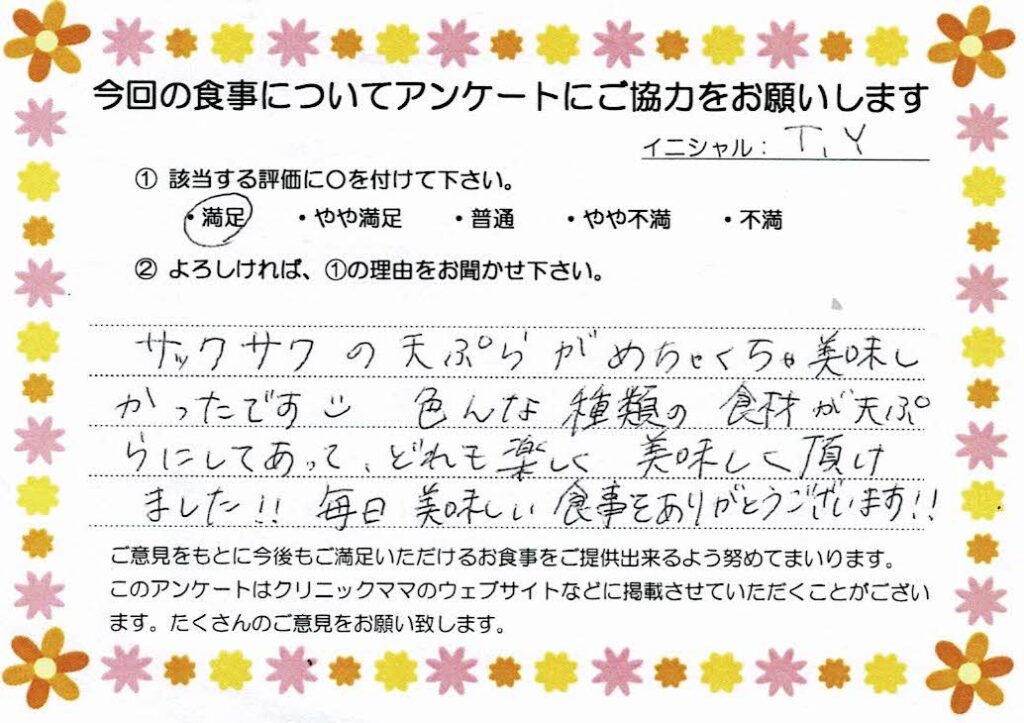 今回の食事についてアンケートにご協力をお願いします
イニシャル： T.Y
① 該当する評価に〇を付けて下さい。
・満足 ・やや満足 ・普通 ・やや不満 ・不満
② よろしければ、①の理由をお聞かせ下さい。
サックサクの天ぷらがめちゃくちゃ美味し
かったです 色んな種類の食材が天ぷ
らにしてあって、どれも楽しく美味しく頂け
ました!! 毎日美味しい食事をありがとうございます!!
ご意見をもとに今後もご満足いただけるお食事をご提供出来るよう努めてまいります。
このアンケートはクリニックママのウェブサイトなどに掲載させていただくことがござい
ます。たくさんのご意見をお願い致します。